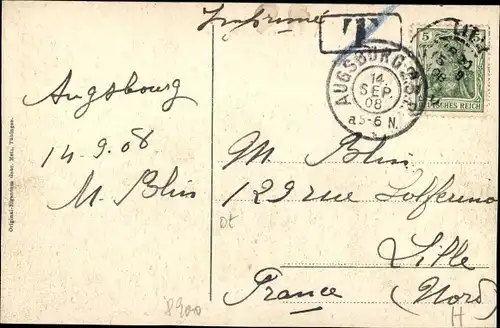 Imprimé
T
5
DEUTSCHES REICH
AUGSBURG 2
14
SEP.
08
a 5-6 N.
Augsbourg
14.9.08
M. Blin
M Blin
129 rue Solferino
Lille
France (Nord)
8900
H
Original-Eigentum Gebr. Metz, Tübingen.